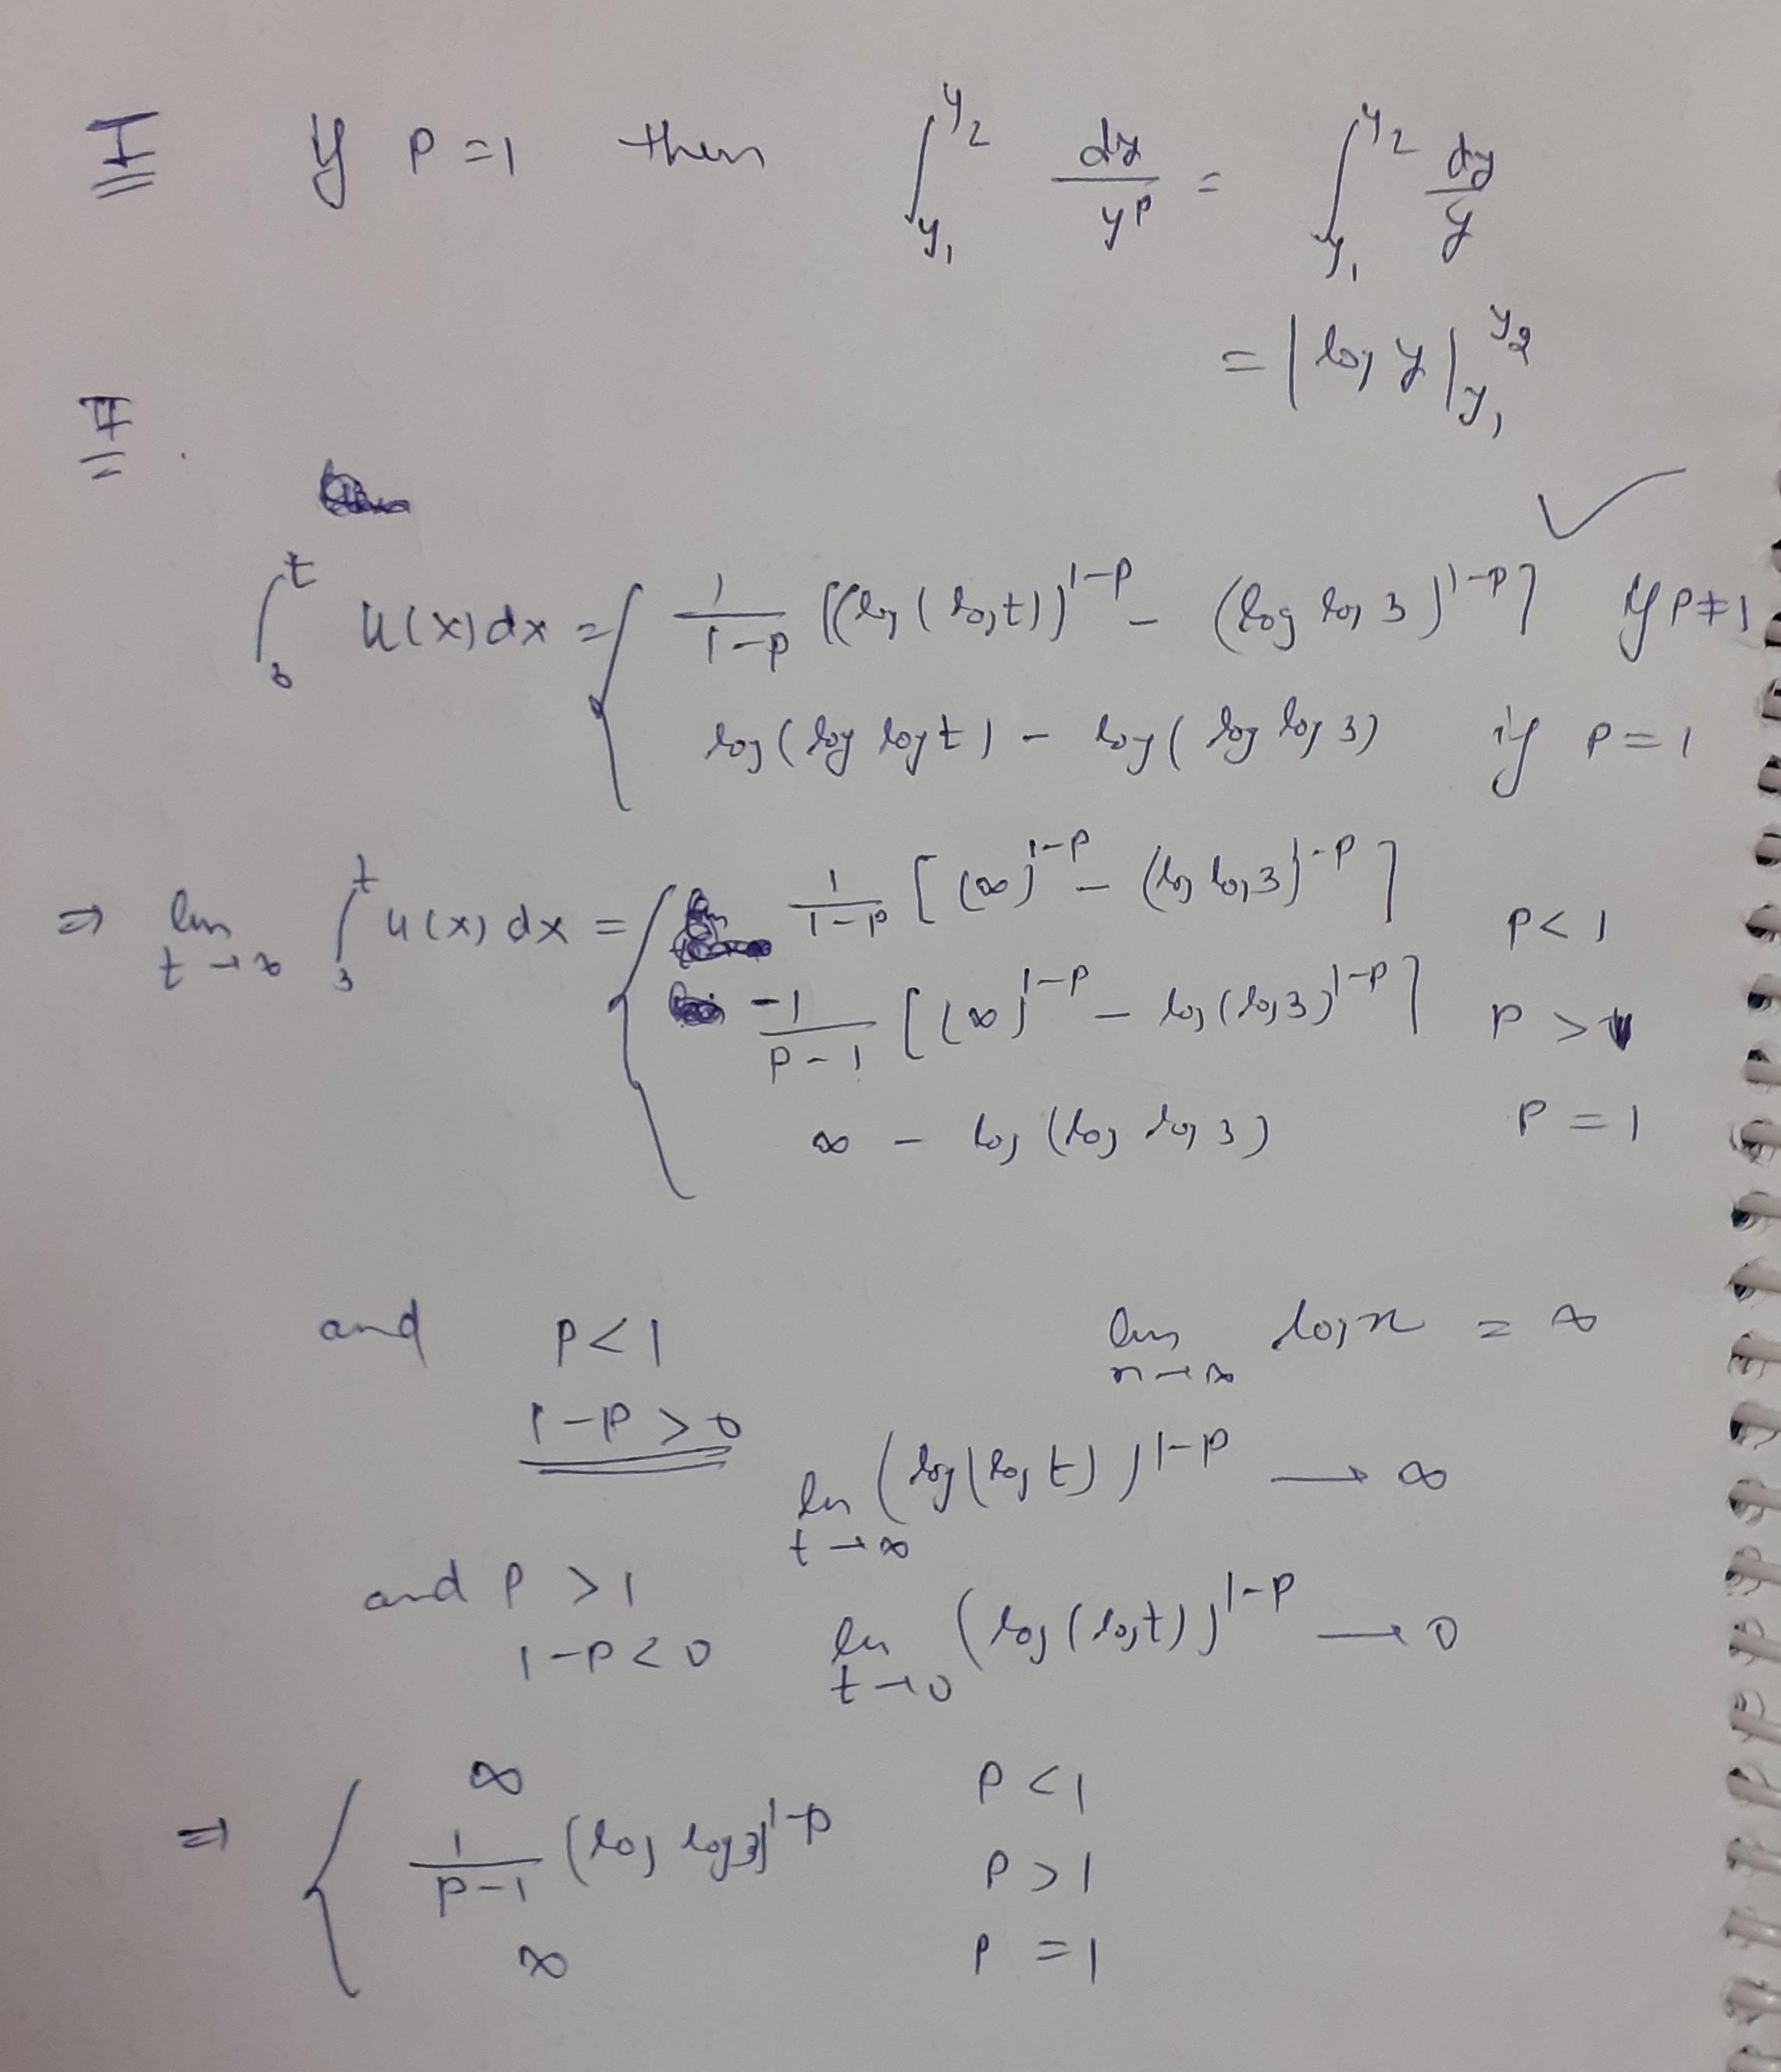 I If P=1 then ∫_{y₁}^{y₂} dy/y^P = ∫_{y₁}^{y₂} dy/y
= |log y|_{y₁}^{y₂}
II.
∫_3^t u(x)dx = { 1/(1-p) [(log(log t))^{1-p} - (log log 3)^{1-p}] if P≠1
log(log log t) - log(log log 3) if P=1
⇒ lim_{t→∞} ∫_3^t u(x)dx = { 1/(1-p) [(∞)^{1-p} - (log log 3)^{1-p}] P<1
-1/(p-1) [(∞)^{1-p} - log(log 3)^{1-p}] P>1
∞ - log(log log 3) P=1
and P<1 lim_{n→∞} log n = ∞
1-p>0
lim_{t→∞} (log(log t))^{1-p} → ∞
and P>1
1-p<0 lim_{t→0} (log(log t))^{1-p} → 0
⇒ { ∞ P<1
1/(p-1) (log log 3)^{1-p} P>1
∞ P=1